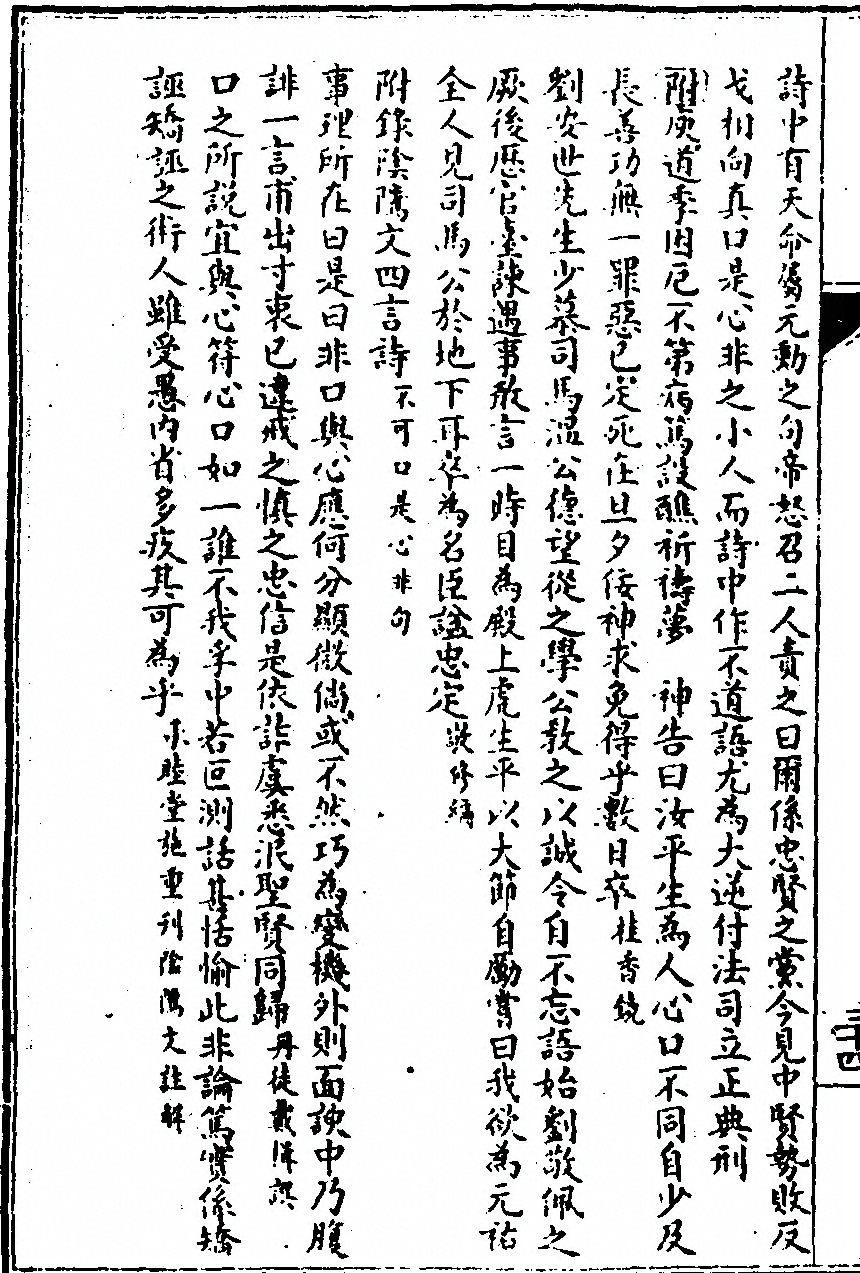 詩中有天命屬元勳之句帝怒召二人責之曰爾係忠賢之黨今見中賢勢敗反
戈相向真口是心非之小人而詩中作不道語尤為大逆付法司立正典刑
附庾道季因厄不第病篤設醮祈禱夢　神告曰汝平生為人心口不同自少及
長善功無一罪惡已定死在旦夕佞神求免得乎數日卒桂香鏡
劉安世先生少慕司馬溫公德望從之學公教之以誠令自不忘語始劉敬佩之
厥後歷官臺諫遇事敢言一時目為殿上虎生平以大節自勵嘗曰我欲為元祐
全人見司馬公於地下耳卒為名臣諡忠定敬修編
附錄陰隲文四言詩不可口是心非句
事理所在曰是曰非口與心應何分顯微倘或不然巧為變機外則面諛中乃腹
誹一言甫出寸衷已違戒之慎之忠信是依詐虞悉泯聖賢同歸丹徒戴
口之所說宜與心符心口如一誰不我孚中若叵測話甚恬愉此非論篤實係矯
誣矯誣之術人雖受愚內省多疚其可為乎睦堂施重刋陰隲文註解
三十四